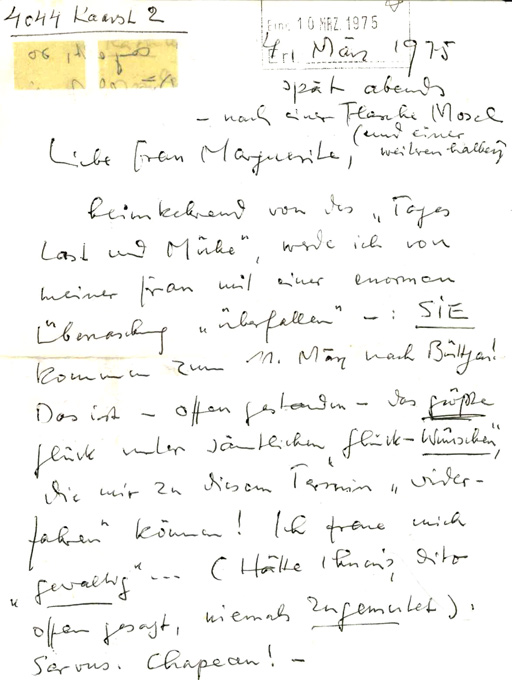 4044 Kaarst 2
Eing. 10 MRZ. 1975
Fri März 1975
spät abends
- nach einer Flasche Mosel
(und einer
weiteren halben)
Liebe Frau Marguerite,
heimkehrend von des „Tages
Last und Mühe“, werde ich von
meiner Frau mit einer enormen
Überraschung „überfallen“ -: SIE
kommen zum 11. März nach Büttgen!
Das ist - offen gestanden - das größte
Glück unter sämtlichen „Glück-Wünschen“,
die mir zu diesem Termin „wider-
fahren“ können! Ich freue mich
„gewaltig“ ... (Hätte Ihnen's, dito
offen gesagt, niemals zugemutet).
Servus. Chapeau! -